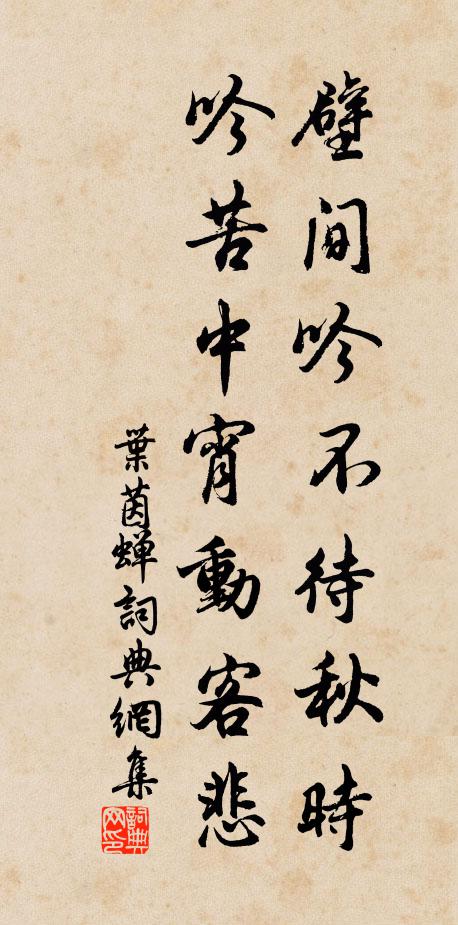 壁間吟不待秋時
吟苦中宵動客悲
葉茵蟬詞典網集
詞典網印